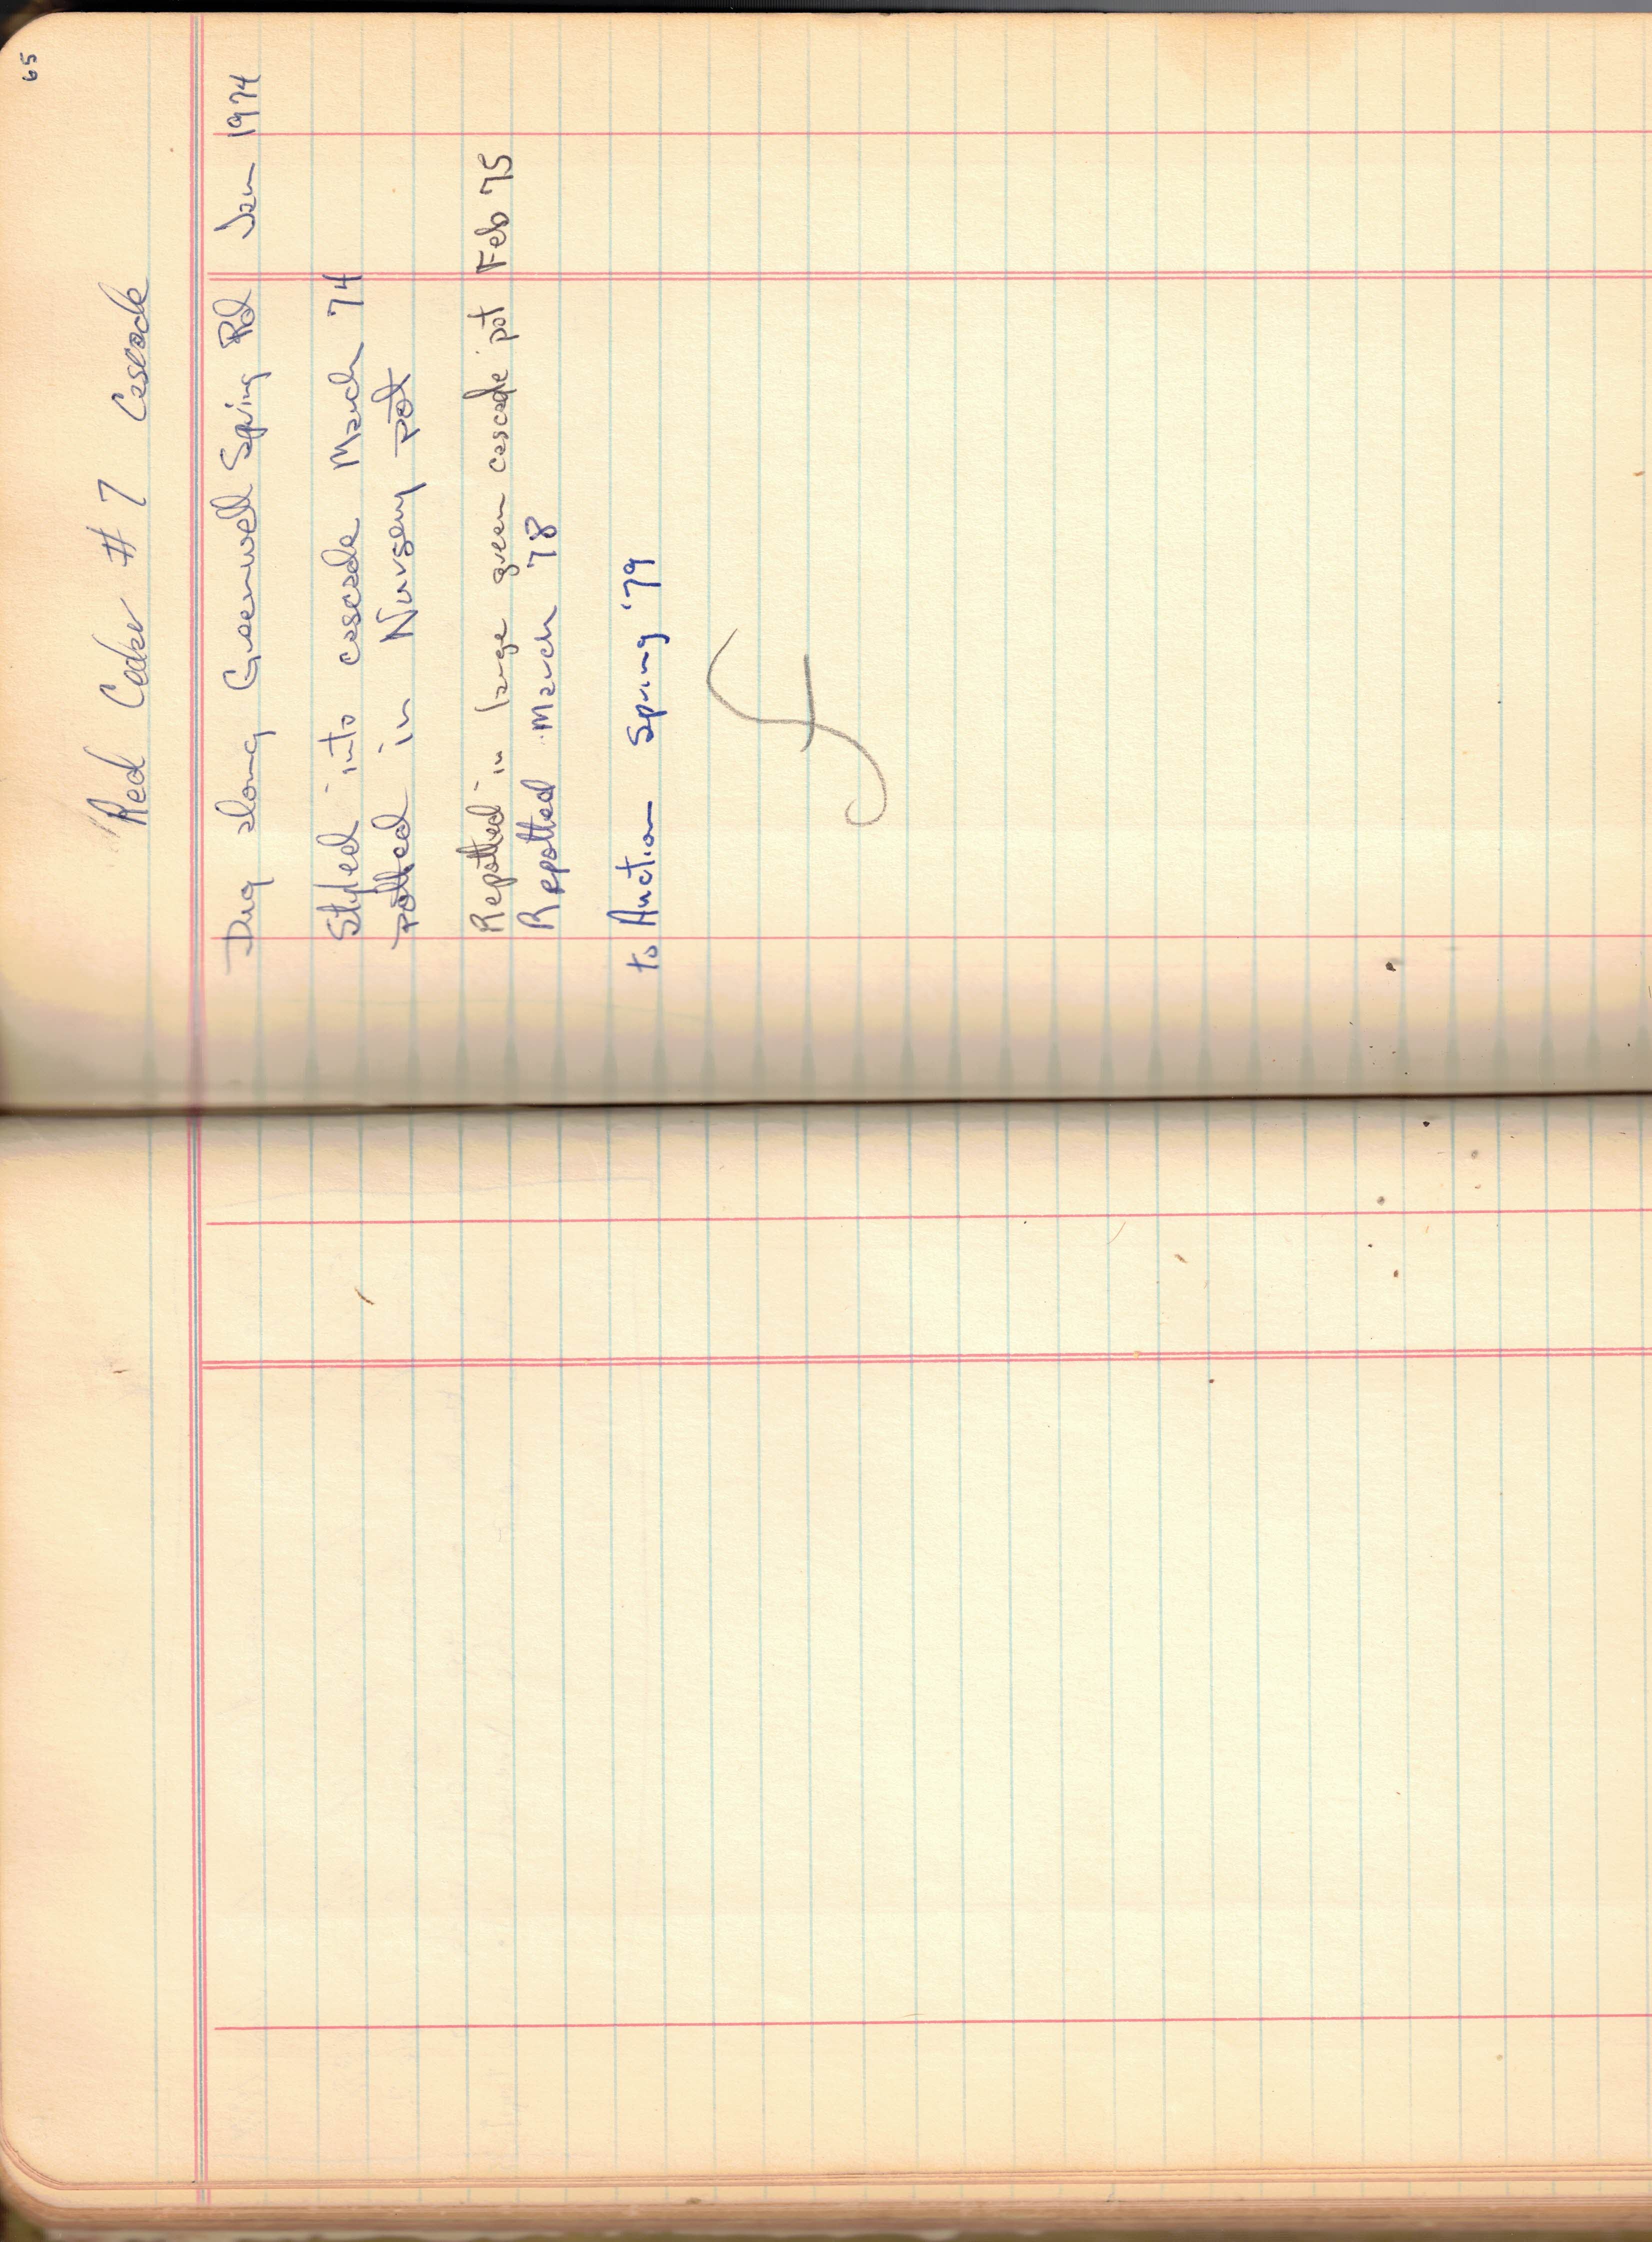 65
Red Cedar # 7 Cascade
Dug along Greenwell Spring Rd Jan 1974
Styled into cascade March 74
potted in Nursery pot
Repotted in large green cascade pot Feb 75
Repotted March 78
to Auction Spring '79
f